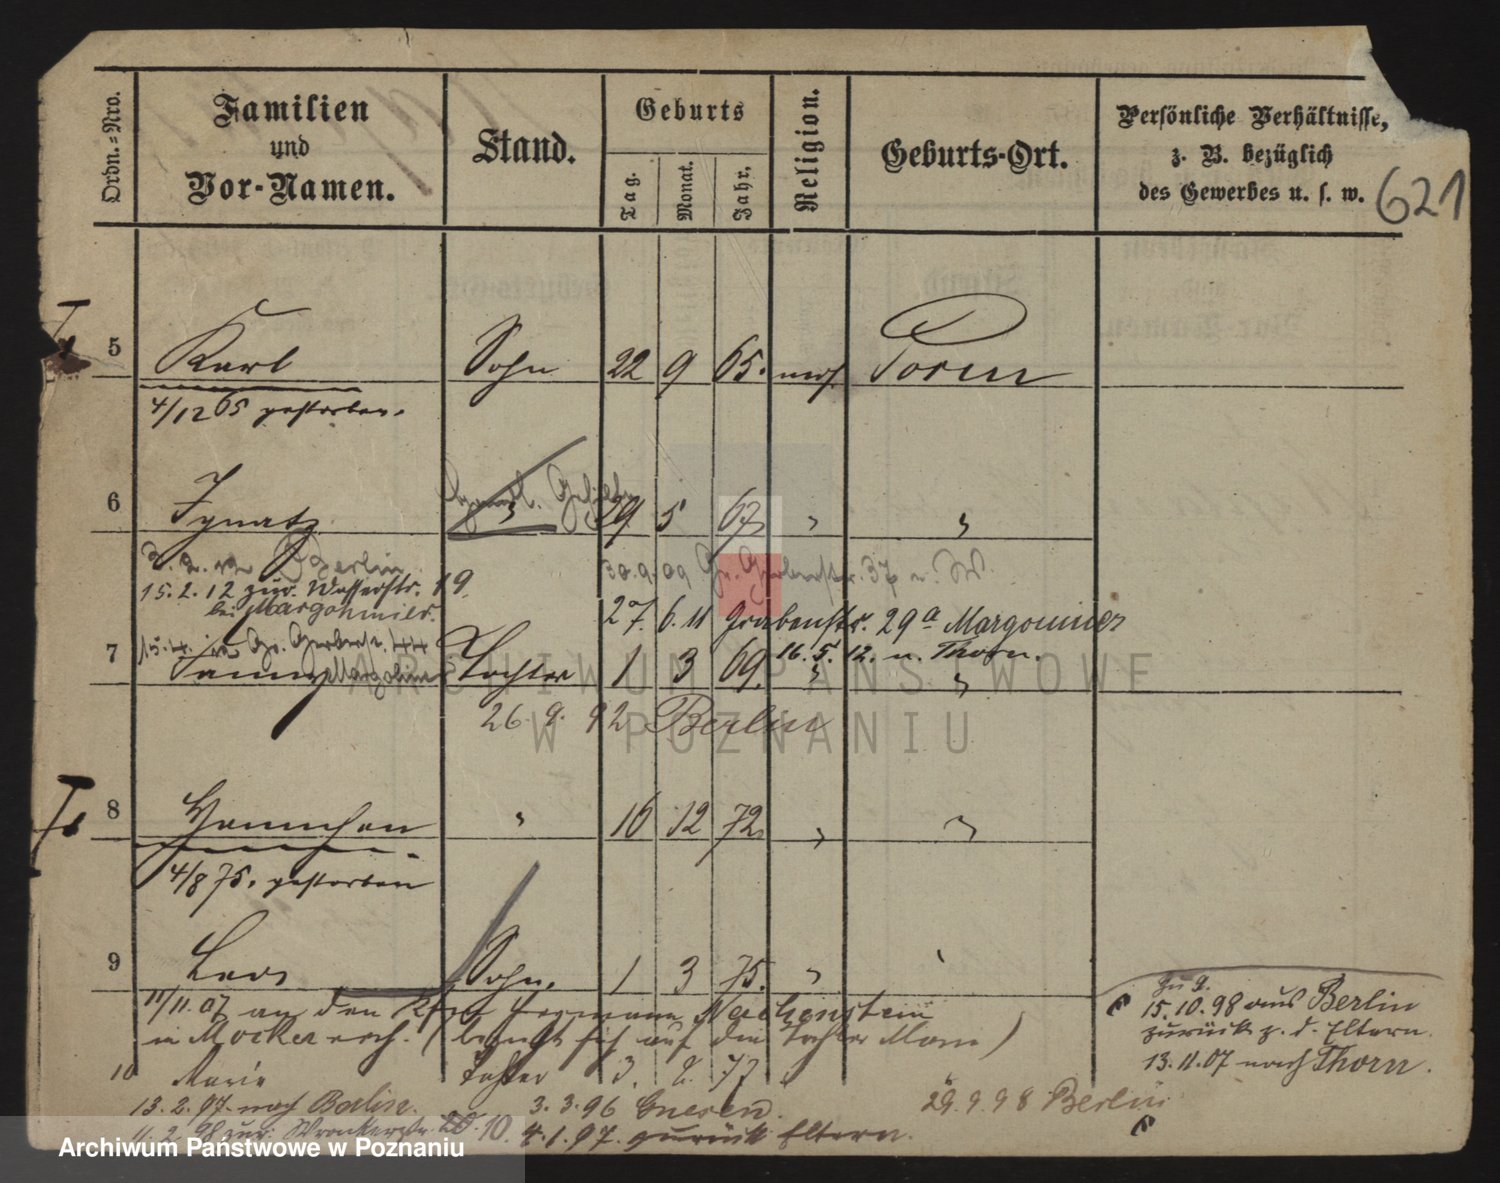 Ordn.=Nro.
Familien
und
Vor-Namen.
Stand.
Geburts
Tag.
Monat.
Jahr.
Religion.
Geburts-Ort.
Persönliche Verhältnisse,
z. B. bezüglich
des Gewerbes u. s. w.
621
5 Karl Sohn 22 9 65. mos. Posen
4/12 65 gestorben.
6 Ignatz 29 5 67 " "
Berlin
30.9.09 Gr. Gerberstr. 37 n. W.
15.2.12 zur. Wasserstr. 19
bei Margoniner.
27.6.11 Grabenstr. 29a Margoniner
16.5.12. n. Thorn.
Gr. Gerberstr. 44
7 Tochter 1 3 69. " "
26.9.92 Berlin
8 Hannchen " 16 12 72. " "
4/8 75. gestorben
9 Leos Sohn. 1 3 75. " "
11/11.07 an den Kfm Hermann
in Mockrehna. (bezieht sich auf die Tochter Marie)
zug.
15.10.98 aus Berlin
zurück z. d. Eltern.
13.11.07 nach Thorn.
10 Marie Tochter 3. 2. 77
13.2.97. nach Berlin.
3.3.96 Gnesen.
29.9.98 Berlin
11.2.98 zur. Wronkerstr. 10.
4.1.97. zurück Eltern.
ARCHIWUM PAŃSTWOWE
W POZNANIU
Archiwum Państwowe w Poznaniu